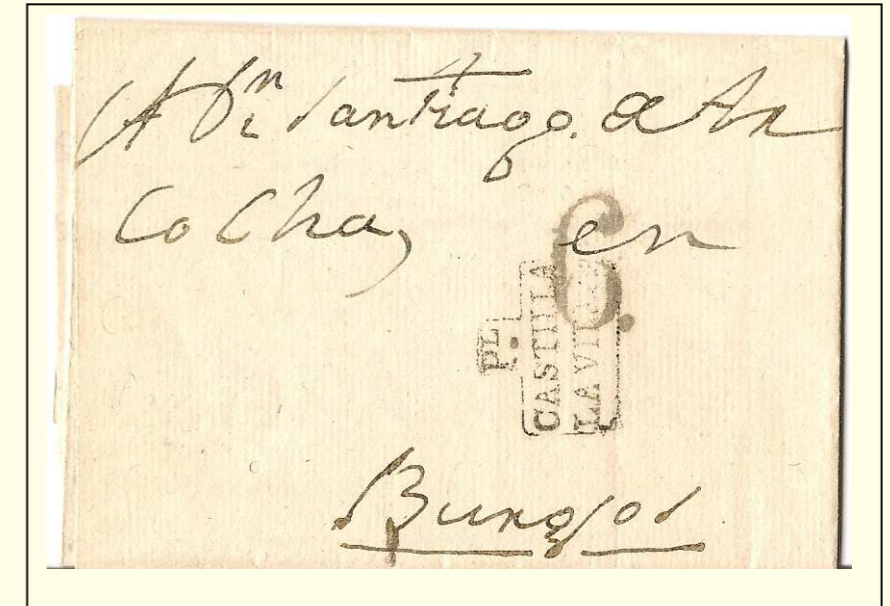 A Dn Santiago. de Ar
Cocha, en
6.
PL.
CASTILLA
LA VIEJA
Burgos